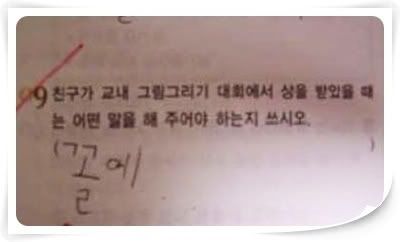 9 친구가 교내 그림그리기 대회에서 상을 받았을 때
는 어떤 말을 해 주어야 하는지 쓰시오.
( 꼴에 )